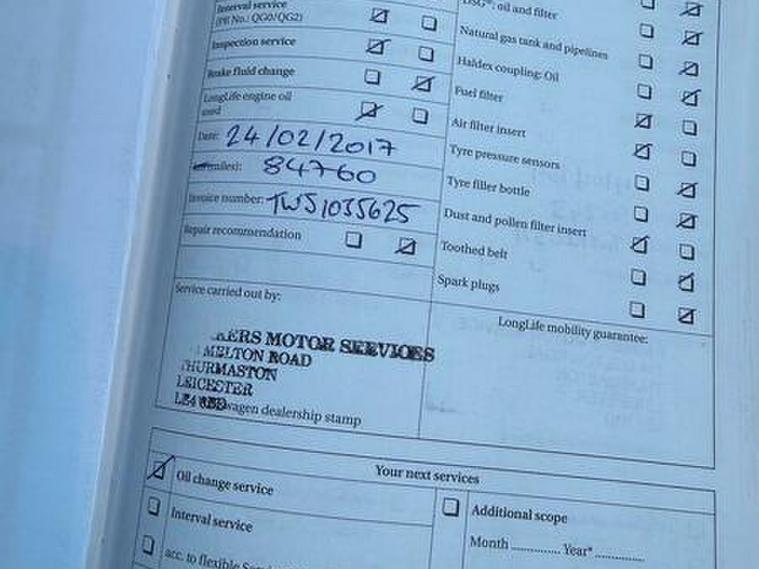 Interval service
(PR No.: QG0/QG2)
Inspection service
Brake fluid change
LongLife engine oil
used
Date: 24/02/2017
(miles): 84760
Invoice number: TWS1035625
Repair recommendation
Service carried out by:
KERS MOTOR SERVICES
MELTON ROAD
THURMASTON
LEICESTER
LE4
wagen dealership stamp
DSG®: oil and filter
Natural gas tank and pipelines
Haldex coupling: Oil
Fuel filter
Air filter insert
Tyre pressure sensors
Tyre filler bottle
Dust and pollen filter insert
Toothed belt
Spark plugs
LongLife mobility guarantee:
Your next services
Oil change service
Interval service
acc. to flexible
Additional scope
Month .............. Year* ..............